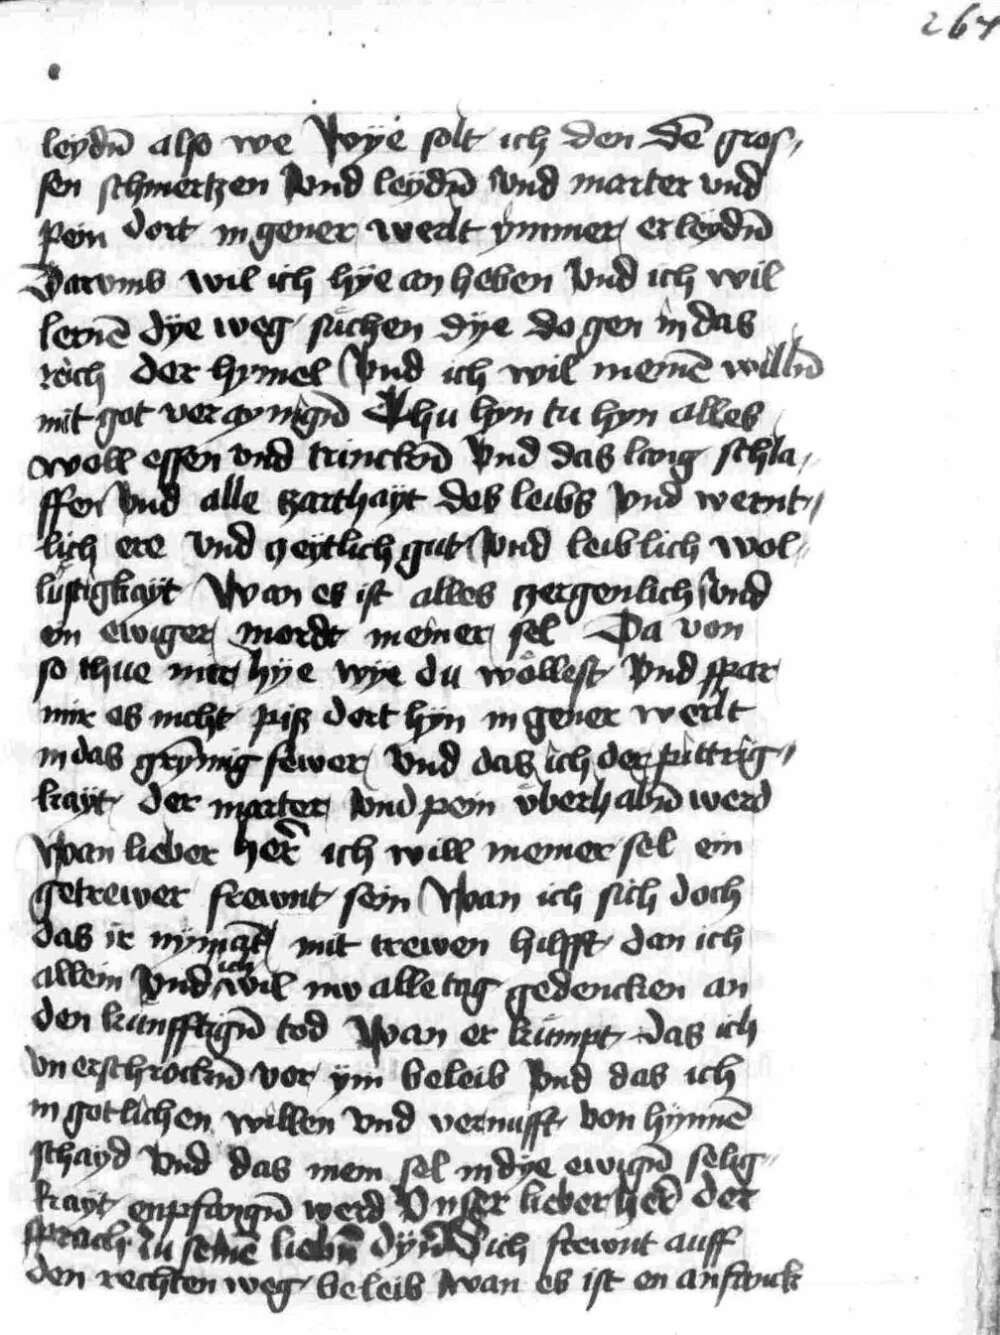 264
leydn̄ also we Wye solt ich den dē gros-
sen schmertzen vnd leydn̄ vnd marter vnd
pein dort in gener werlt ymmer erleydn̄
Darvmb wil ich hye an heben vnd ich wil
lernē dye weg suchen dye do gen in das
reich der hymel Vnd ich wil meinē willn̄
mit got veraynign̄ Thu hyn tu hyn alles
woll essen vnd trinckn̄ vnd das lang schla-
ffen vnd alle zarthayt des leibs vnd wernt-
lich ere vnd zeytlich gut vnd leiblich wol-
lustigkayt Wan es ist alles zergenlich vnd
ein ewiger mordt meiner sel Da von
so thue mir hye wye du wöllest vnd spar
mir es nicht piß dort hyn in gener werlt
in das grymig fewer vnd das ich der pittrig-
kayt der marter vnd pein vberhabn̄ werd
Wan lieber her̄ ich will meiner sel ein
getrewer frewnt sein Wan ich sich doch
das ir nymāt mit trewen hilfft dan ich
allein vnd ich wil nw alle tag gedencken an
den künfftign̄ tod Wan er kümpt das ich
vnerschrockn̄ vor ym beleib vnd das ich
in gotlichen willen vnd vernufft von hynnē
schayd vnd das mein sel in dye ewign̄ selig-
kayt enpfangn̄ werd Vnser lieber her̄ der
sprach zu seinē liebn̄ dyn̄ Dich frewnt auff
den rechten weg beleib wan es ist en anfanck